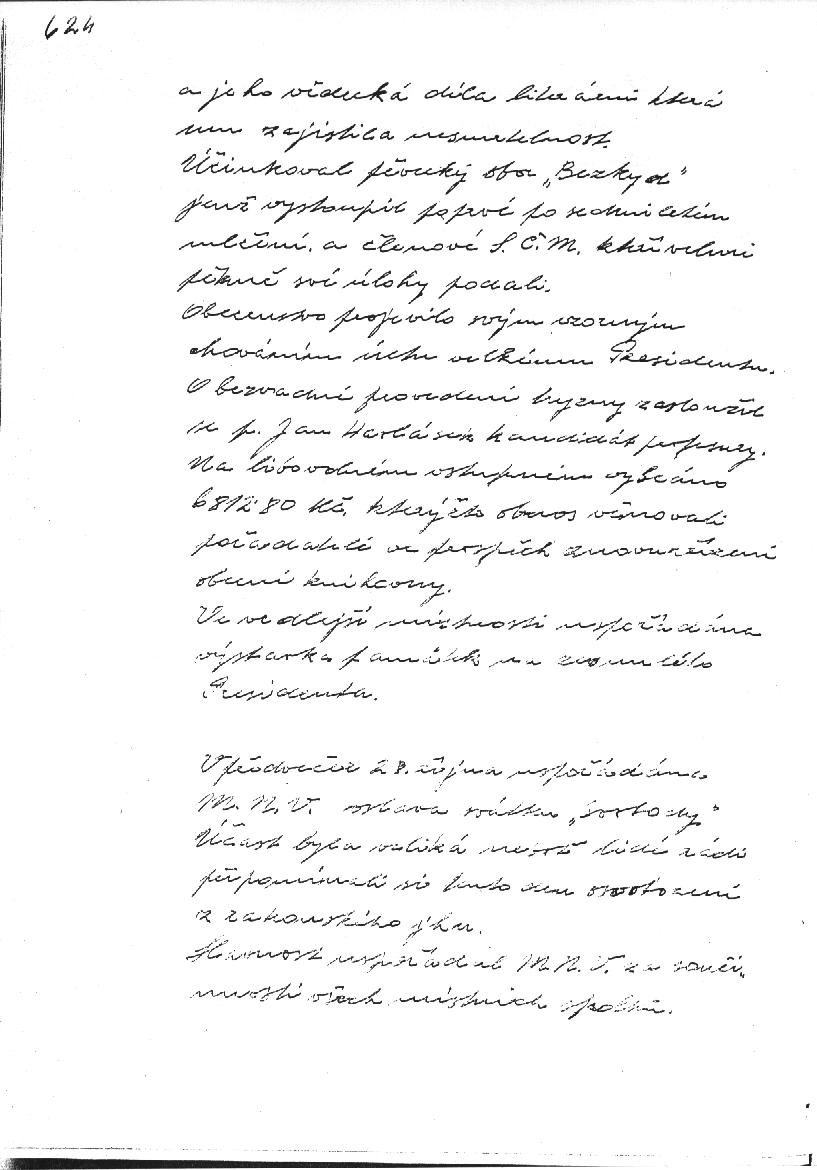 624
a jeho vědecká díla literární která
mu zajistila nesmrtelnost.
Účinkoval pěvecký sbor „Bezkyd"
jenž vystoupil poprvé po sedmiletém
mlčení. a členové S. Č. M. kteří velmi
pěkně své úlohy podali.
Obecenstvo projevilo svým vzorným
chováním úctu velkému Presidentu.
O bezvadné provedení tryzny zasloužil
se p. Jan kandidát profesury.
Na libovolném vstupném vybráno
6812·80 Kč, kterýžto obnos věnovali
pořadatelé ve prospěch znovuzřízení
obecní knihovny.
Ve vedlejší místnosti uspořádána
výstavka památek na zesnulého
Presidenta.
V předvečer 28. října uspořádána
M. N. V. oslava svátku „svobody"
Účast byla veliká neboť lidé rádi
připomínali si tento den osvobození
z rakouského jha.
Slavnost uspořádal M. N. V. za souči-
nnosti všech místních spolků.